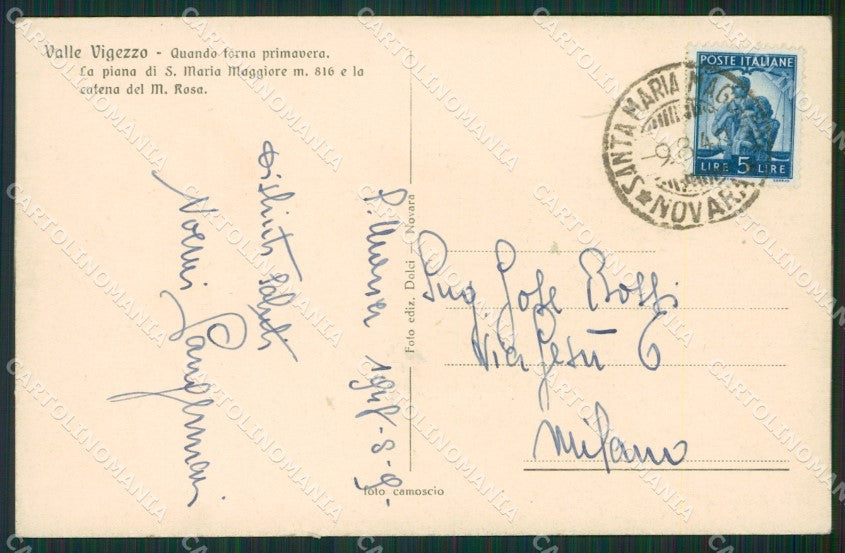 Valle Vigezzo - Quando torna primavera.
La piana di S. Maria Maggiore m. 816 e la
catena del M. Rosa.
POSTE ITALIANE
LIRE 5 LIRE
SANTA MARIA MAGG
NOVARA
-9.8.4
Distinti saluti
Noemi
1948-8-9
Foto ediz. Dolci - Novara
foto camoscio
Ing. Jose Rossi
Via Gesù 6
Milano
CARTOLINOMANIA